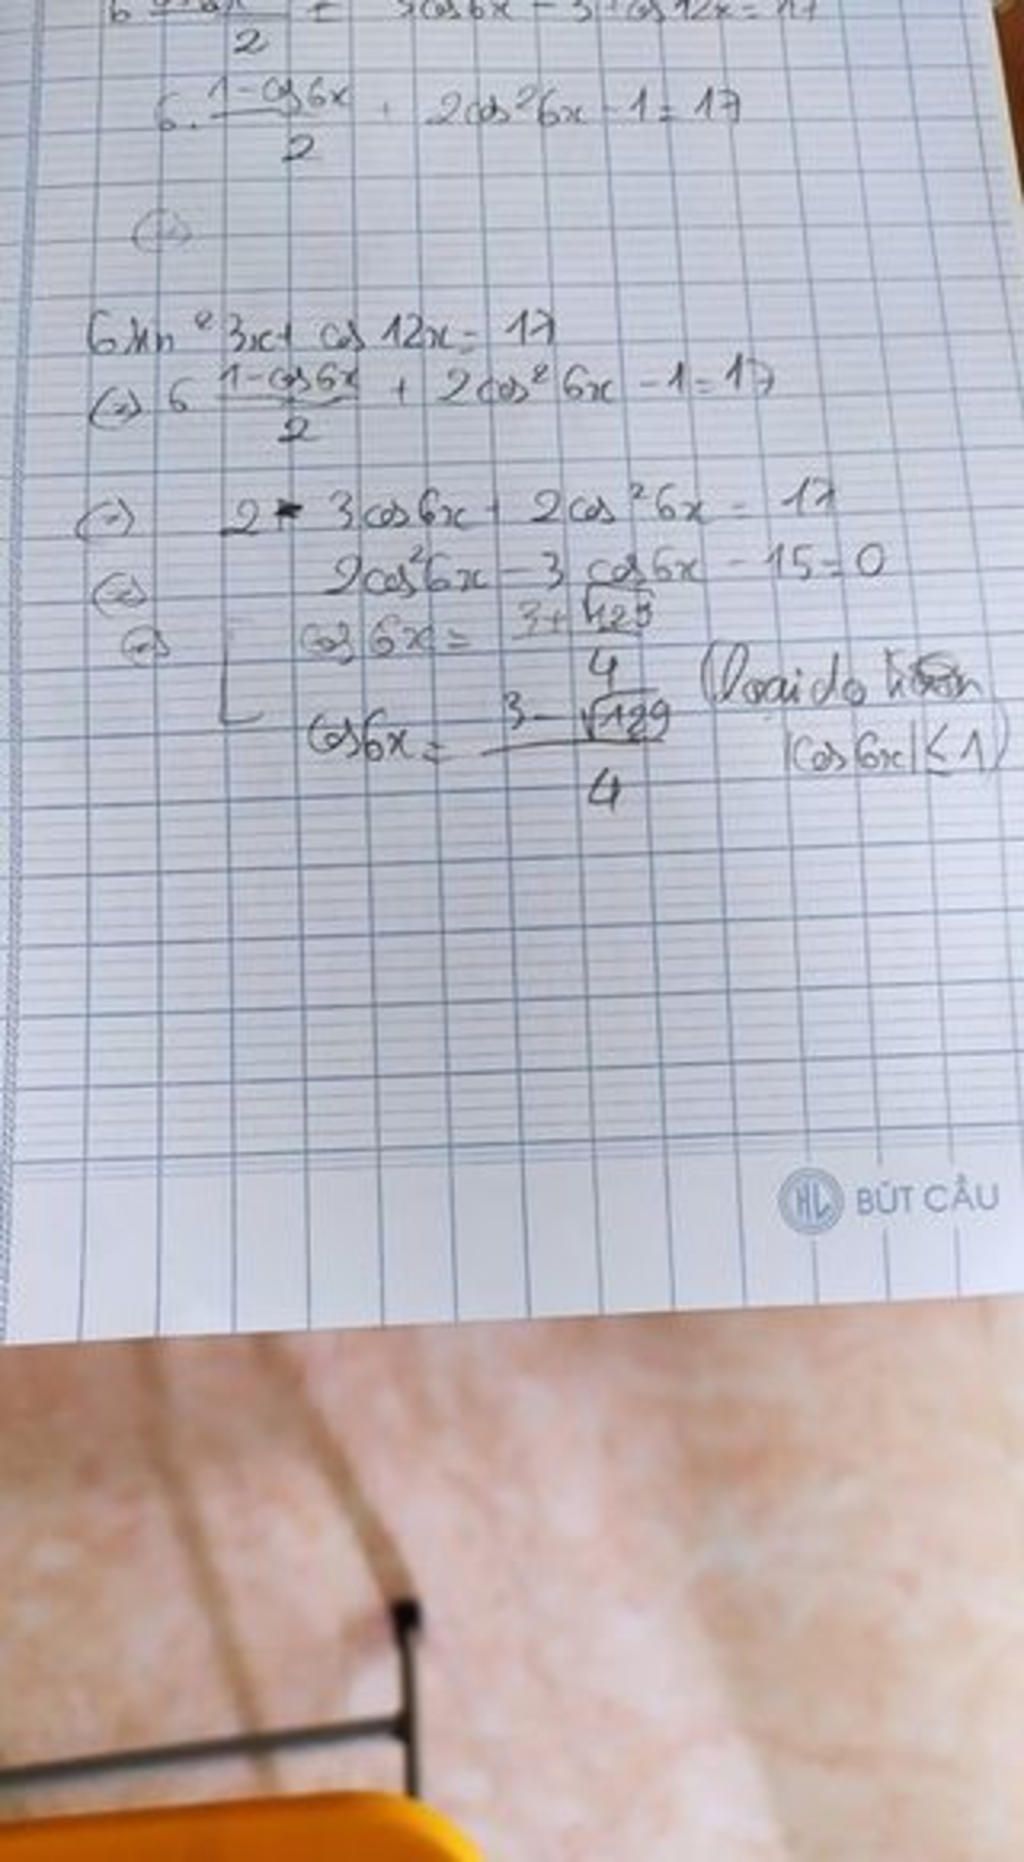 2 3cos6x - 3 + cos12x = 17
6. 1-cos6x / 2 + 2cos²6x - 1 = 17
(=)
6sin²3x + cos 12x = 17
(=) 6 1-cos6x / 2 + 2cos²6x - 1 = 17
(=) 2 - 3cos6x + 2cos²6x = 17
(=) 2cos²6x - 3 cos6x - 15 = 0
(=) cos6x = 3+√129 / 4
cos6x = 3-√129 / 4 (loại do
|cos6x| ≤ 1)
HL BÚT CẦU